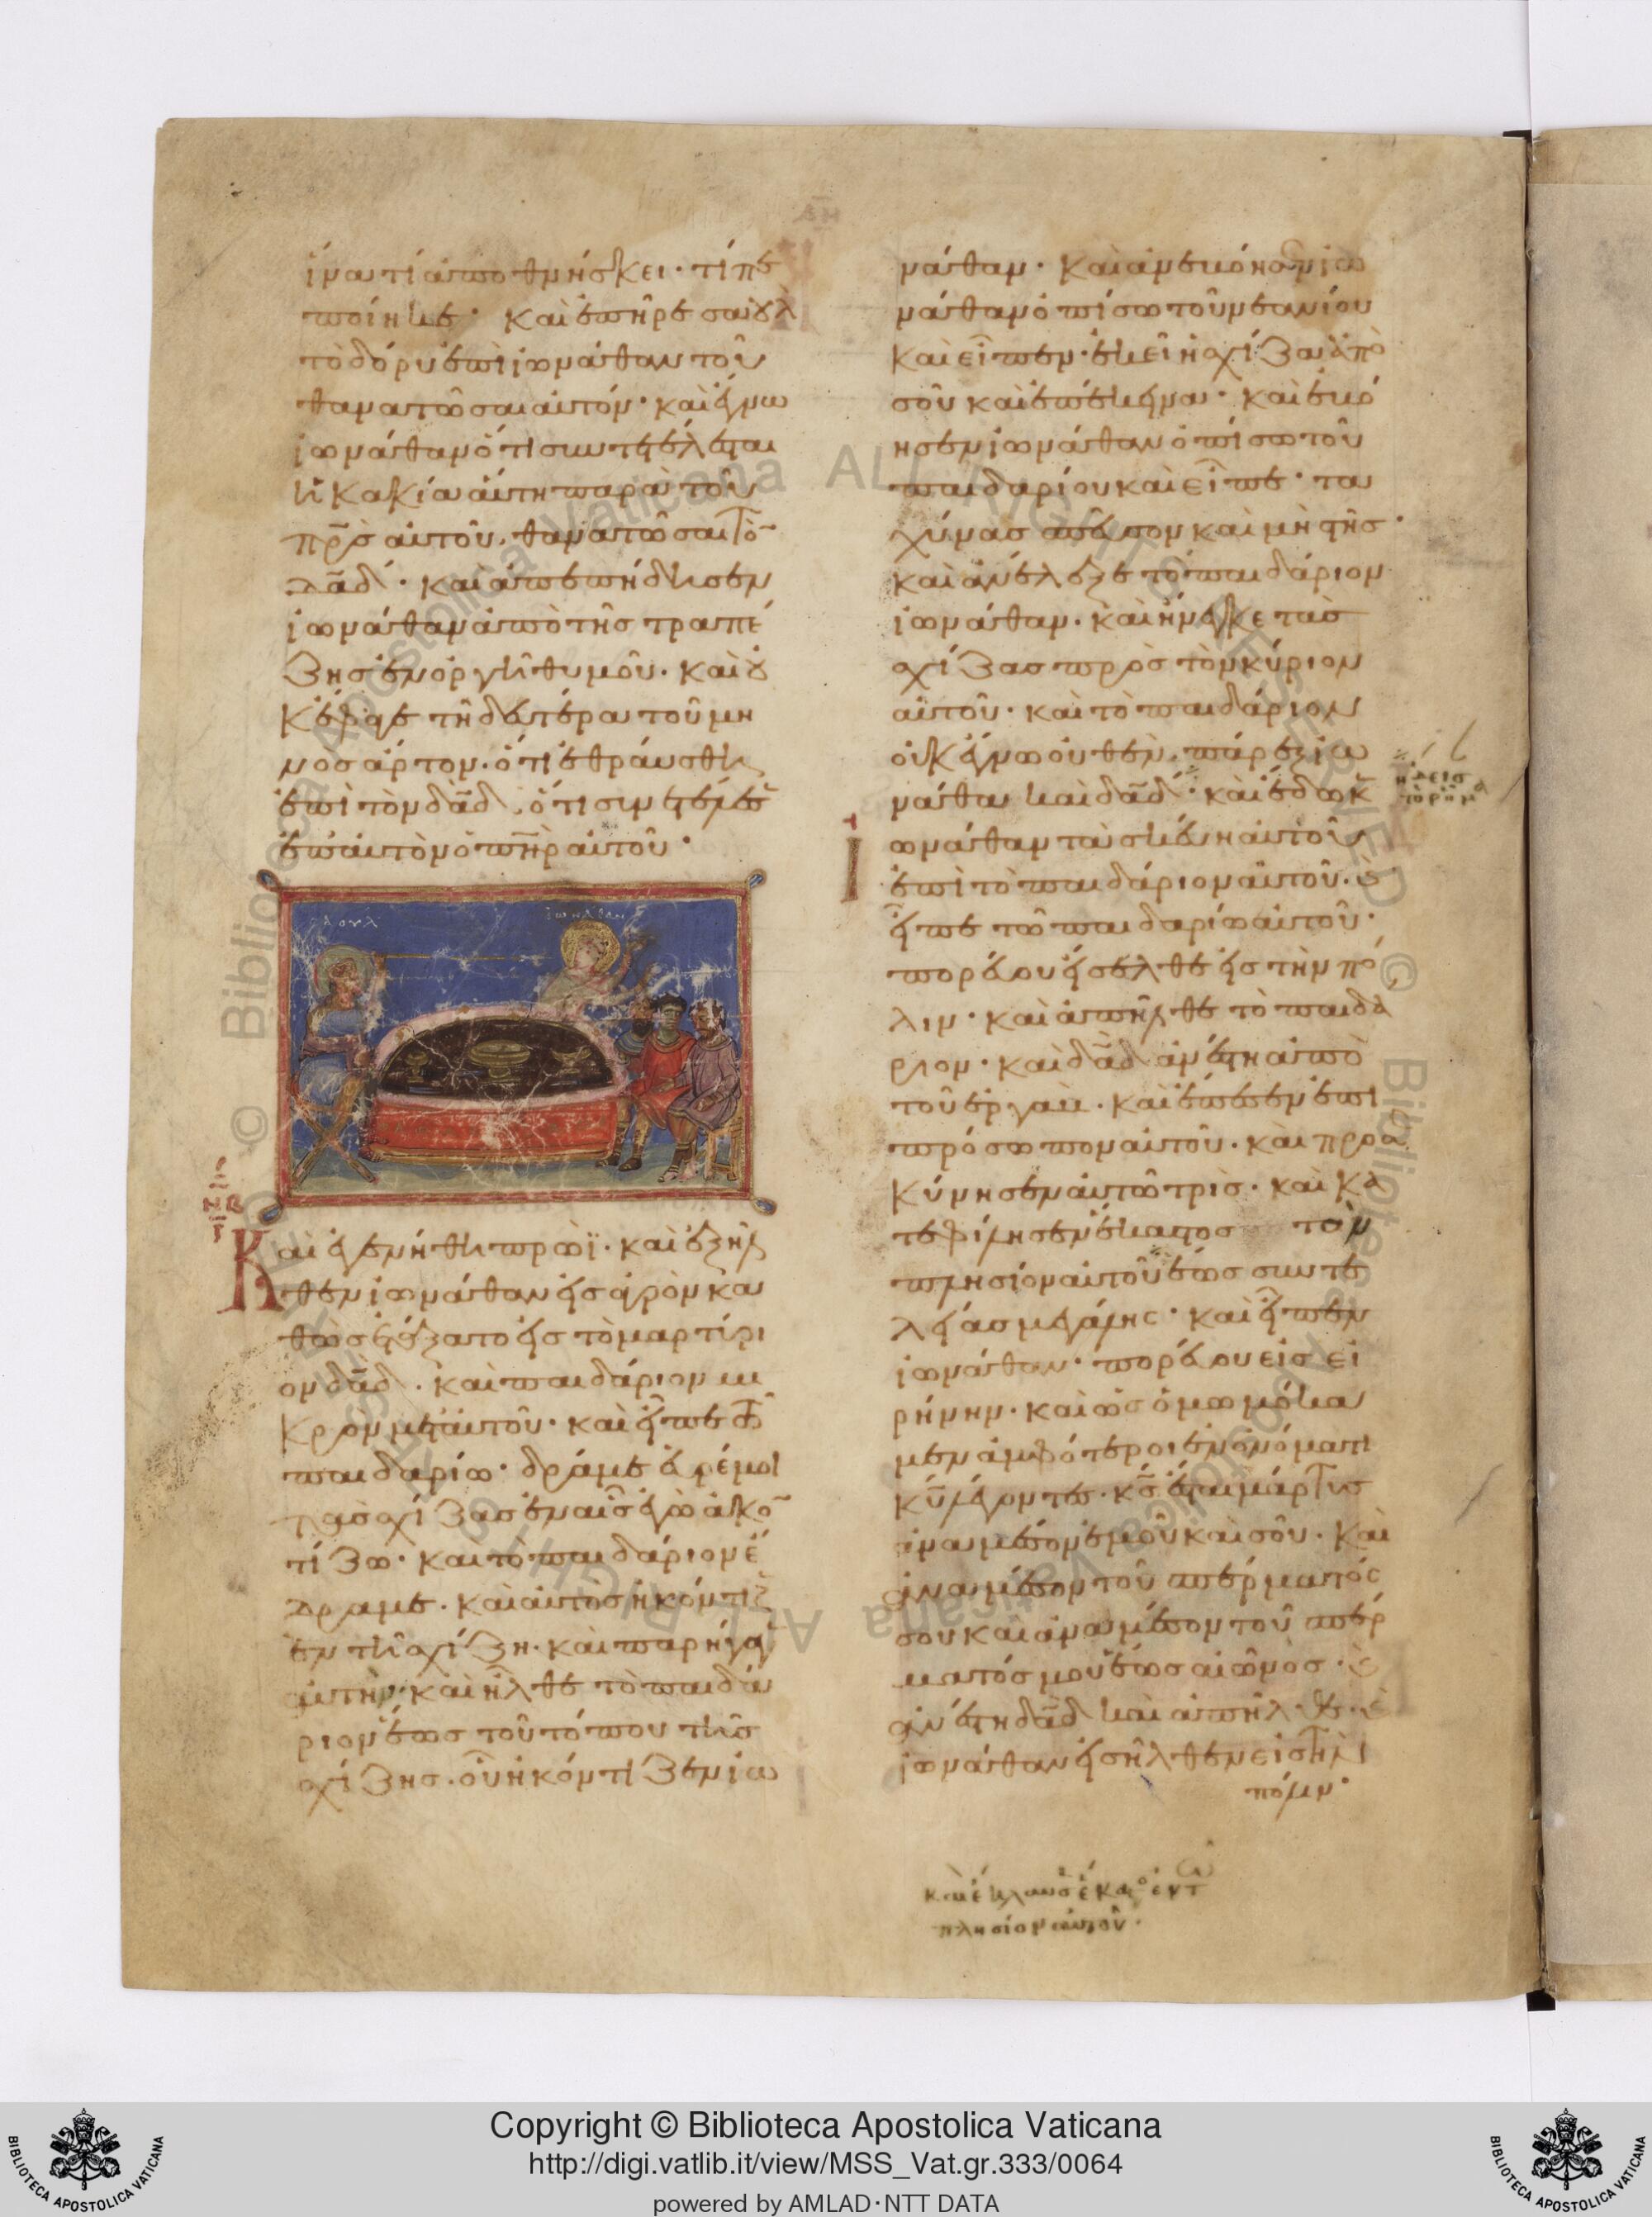 ἵνα τί ἀποθνήσκει· τί πε
ποίηκε· καὶ ἐπῆρε σαούλ
τὸ δόρυ ἐπὶ ἰωνάθαν τοῦ
θανατῶσαι αὐτόν· καὶ ἔγνω
ἰωνάθαν ὅτι συντετέλεσται
ἡ κακία αὕτη παρὰ τοῦ
π̅ρ̅ς̅ αὐτοῦ, θανατῶσαι τὸ̅
δ̅α̅δ̅· καὶ ἀπεπήδησεν
ἰωνάθαν ἀπὸ τῆς τραπέ
ζης ἐν ὀργῆ θυμοῦ· καὶ οὐ
κ ἔφαγε τῆ δευτέρα τοῦ μη
νὸς ἄρτον· ὅτι ἐθραύσθη
ἐπὶ τὸν δ̅α̅δ̅· ὅτι συνετέλεσε̅
ἐπ αὐτὸν ὁ π̅η̅ρ̅ αὐτοῦ·
Καὶ ἐγενήθη πρωῒ· καὶ ἐξῆλ
θεν ἰωνάθαν εἰς ἀγρὸν κα
θὼς ἐτάξατο εἰς τὸ μαρτύρι
ον δ̅α̅δ̅· καὶ παιδάριον μι
κρον μετ αὐτοῦ· καὶ εἶπε τῶ
παιδαρίω· δράμε εὑρέ μοι
τὰς σχίζας ἐν αἷς ἐγὼ ἀκο̅
τίζω· καὶ τὸ παιδάριον ἔ
δραμε· καὶ αὐτὸς ἠκόντιζ
εν τῆ σχίζη· καὶ παρήγαγ
αὐτήν· καὶ ἦλθε τὸ παιδά
ριον ἕως τοῦ τόπου τῆς
σχίζης· οὗ ἠκόντιζεν ἰω
νάθαν· καὶ ἀνεβόησεν ἰω
νάθαν ὀπίσω τοῦ νεανίου
καὶ εἶπεν· ἐκεῖ ἡ σχίζα ἀπὸ
σοῦ καὶ ἐπέκεινα· καὶ ἐβό
ησεν ἰωνάθαν ὀπίσω τοῦ
παιδαρίου καὶ εἶπε· τα
χύνας σπεῦσον καὶ μὴ στῆς·
καὶ ἀνέλεξε τὸ παιδάριον
ἰωνάθαν· καὶ ἤνεγκε τὰς
σχίζας πρὸς τὸν κύριον
αὐτοῦ· καὶ τὸ παιδάριον
οὐκ ἔγνω οὐθὲν, πάρεξ ἰω
νάθαν καὶ δ̅α̅δ̅· καὶ ἔδωκ̅
Ἰωνάθαν τὰ σκεύη αὐτοῦ
ἐπὶ τὸ παιδάριον αὐτοῦ· καὶ
εἶπε τῶ παιδαρίω αὐτοῦ·
πορεύου εἴσελθε εἰς τὴν πό
λιν· καὶ ἀπῆλθε τὸ παιδά
ριον· καὶ δ̅α̅δ̅ ἀνέστη ἀπὸ
τοῦ ἐργαὺ· καὶ ἔπεσεν ἐπὶ
πρόσωπον αὐτοῦ· καὶ προσ
κύνησεν αὐτῶ τρίς· καὶ κα
τεφίλησεν ἕκαστος τὸν
πλησίον αὐτοῦ ἕως συντε
λείας μεγάλης· καὶ εἶπεν
ἰωνάθαν· πορεύου εἰς εἰ
ρήνην· καὶ ὡς ὀμωμόκα
μεν ἀμφότεροι ἐν ὀνόματι
κ̅υ̅ λέγοντες· κ̅ς̅ ἔσται μάρτυς
ἀναμέσον ἐμοῦ καὶ σοῦ· καὶ
ἀναμέσον τοῦ σπέρματός
σου καὶ ἀναμέσον τοῦ σπέρ
ματός μου ἕως αἰῶνος· καὶ
ἀνέστη δ̅α̅δ̅ καὶ ἀπῆλθε· καὶ
ἰωνάθαν εἰσῆλθεν εἰς τὴν
πόλιν·
καὶ ἔκλαυσε ἕκαστος ἐν τῶ
πλησίον αὐτοῦ·
Copyright © Biblioteca Apostolica Vaticana
http://digi.vatlib.it/view/MSS_Vat.gr.333/0064
powered by AMLAD·NTT DATA
BIBLIOTECA APOSTOLICA VATICANA
BIBLIOTECA APOSTOLICA VATICANA